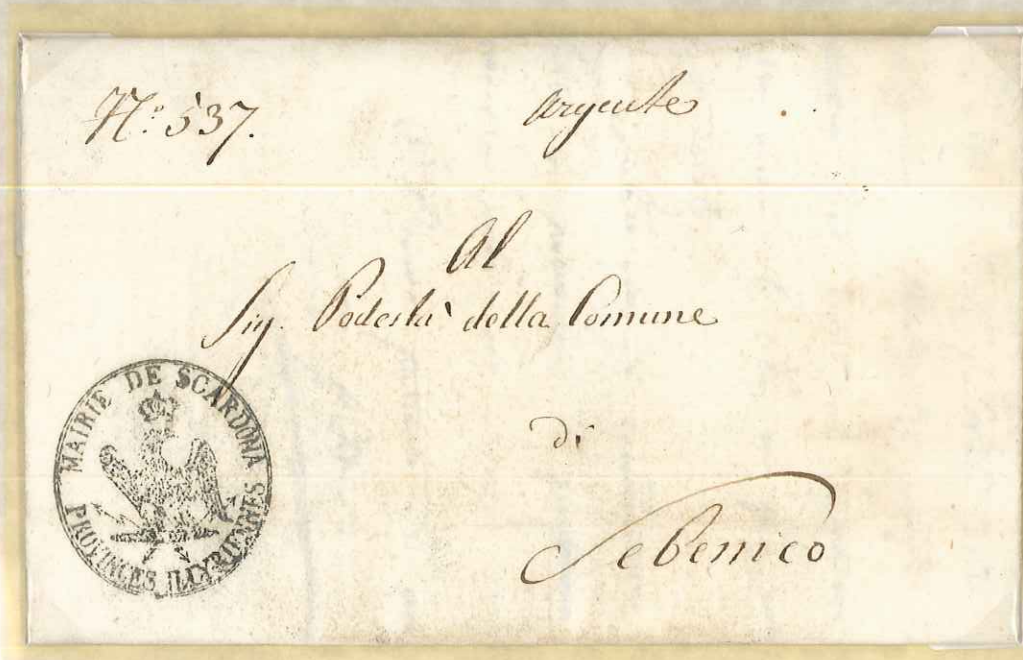 N.o 537.
urgente
Al
Sig. Podestà della Comune
di
Sebenico
MAIRIE DE SCARDONA
PROVINCES ILLYRIENNES